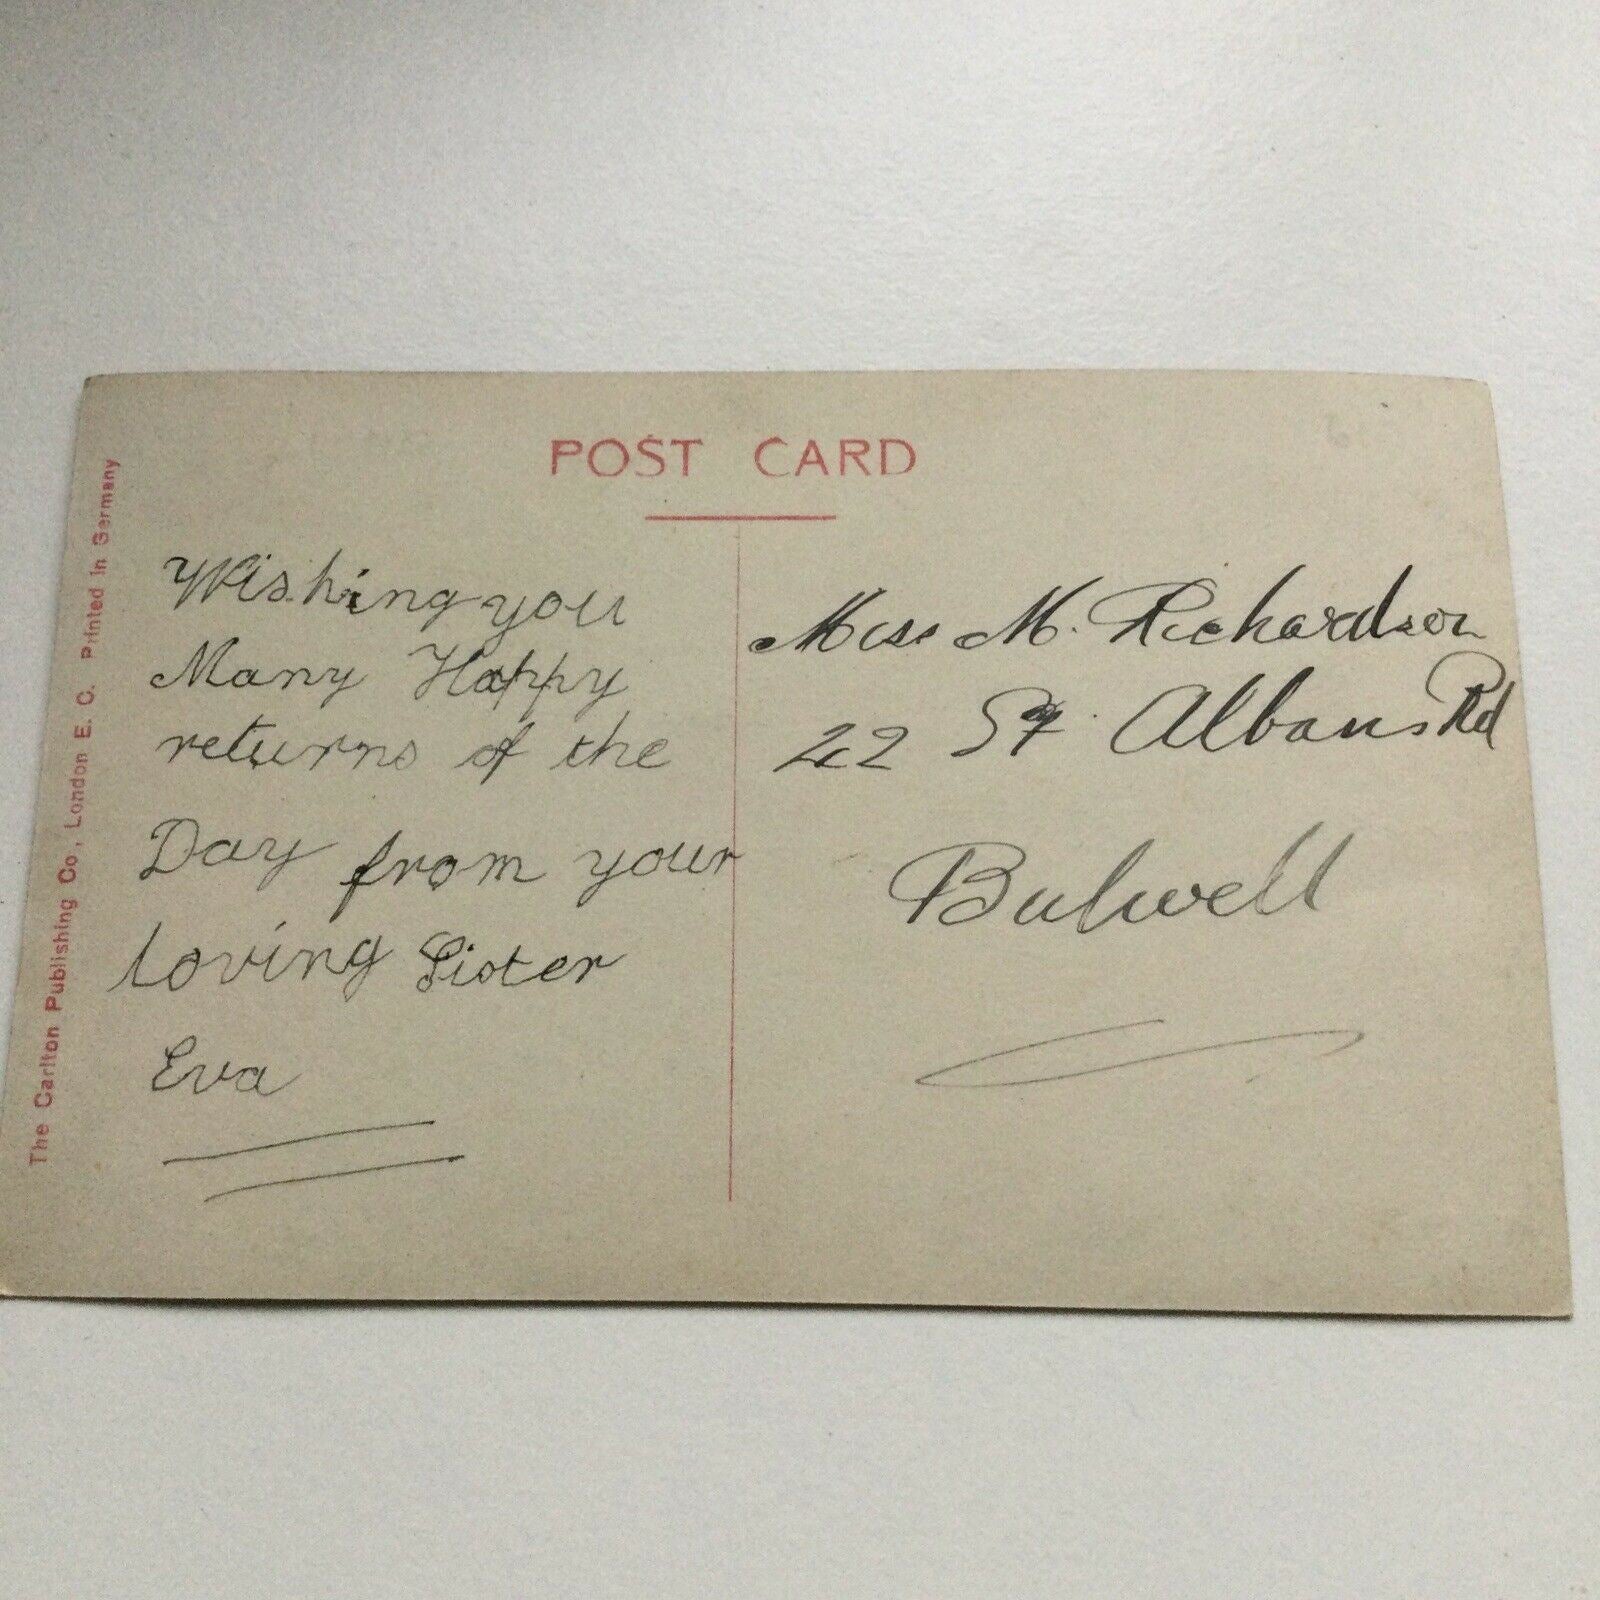 POST CARD
The Carlton Publishing Co, London E. C. Printed in Germany
Wishing you
Many Happy
returns of the
Day from your
loving Sister
Eva
Miss M. Richardson
22 St Albans Rd
Bulwell